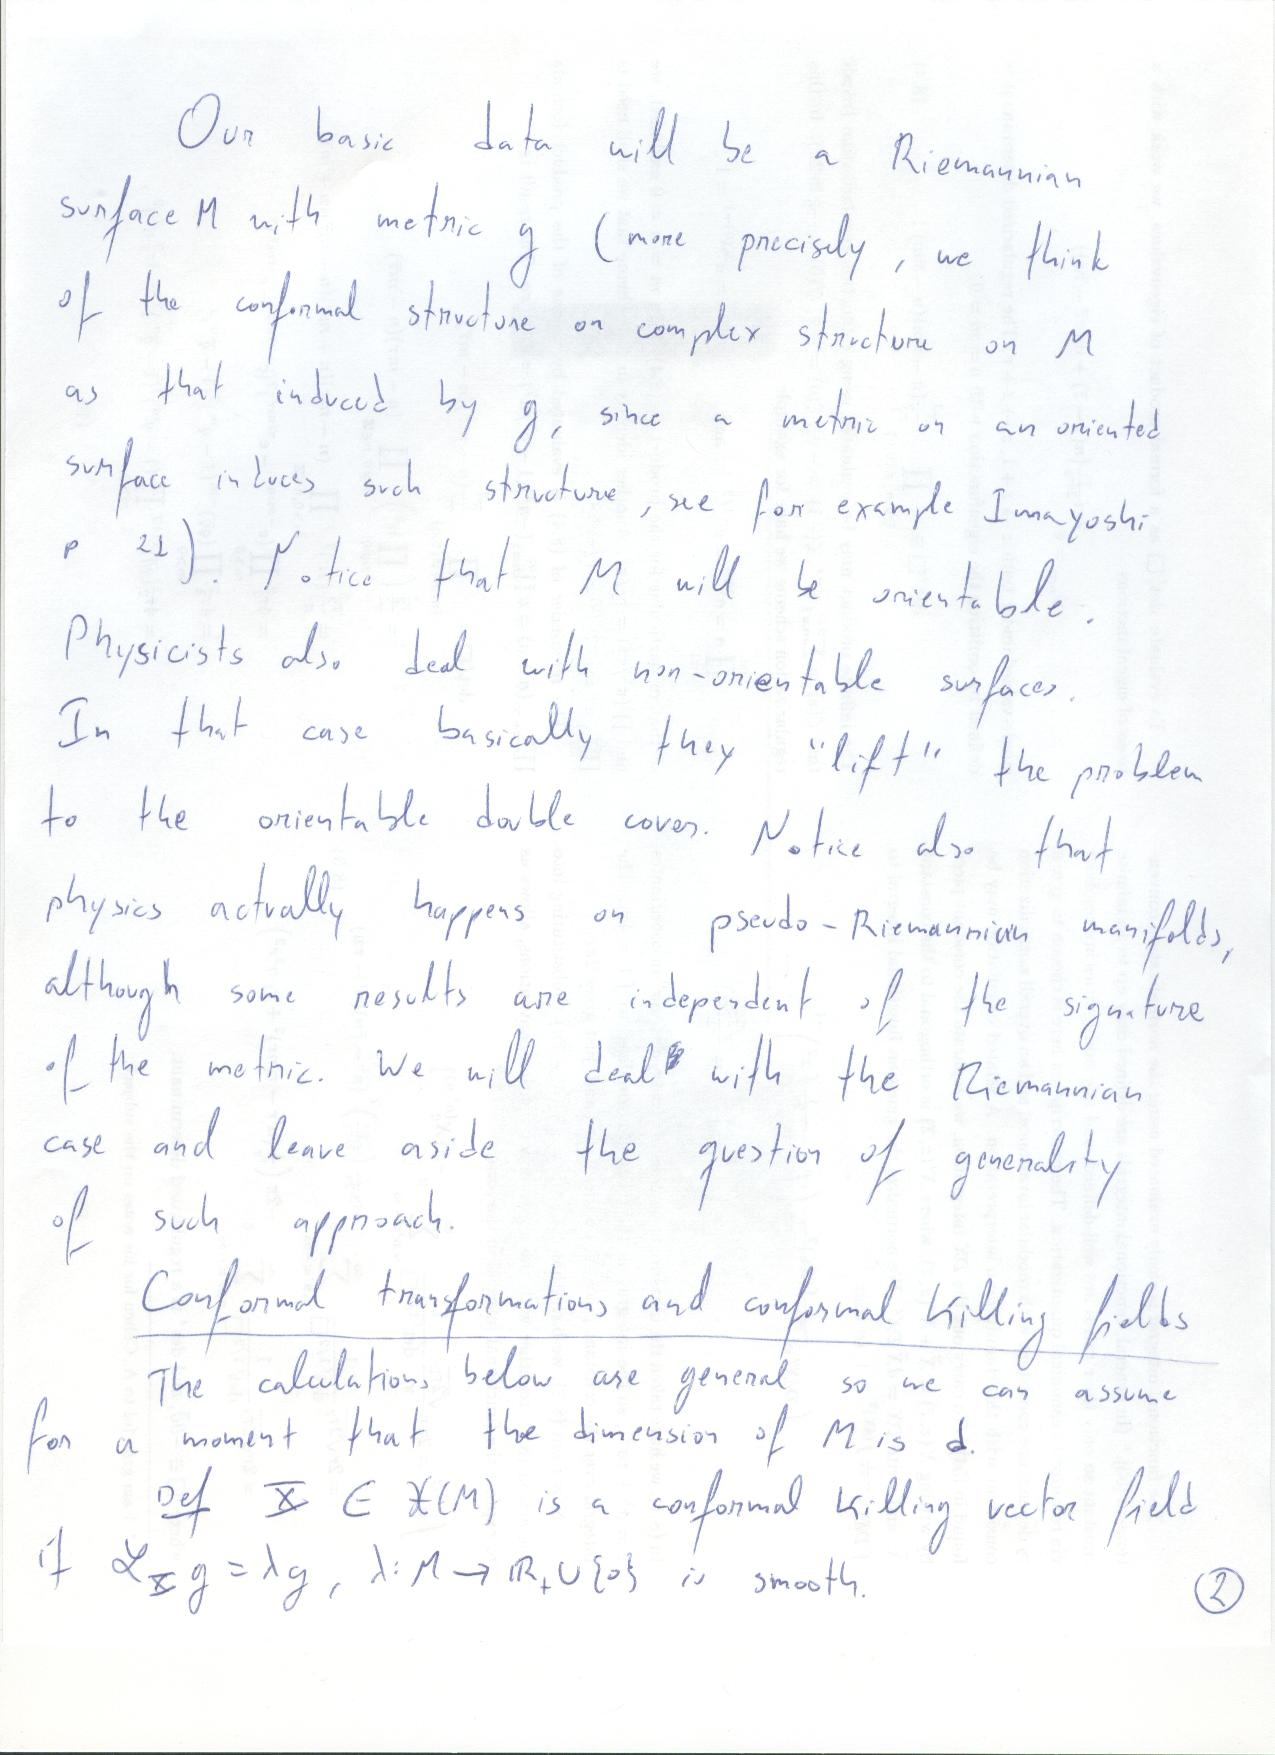 Our basic data will be a Riemannian
surface M with metric g (more precisely, we think
of the conformal structure or complex structure on M
as that induced by g, since a metric on an oriented
surface induces such structure, see for example Imayoshi
p 21). Notice that M will be orientable.
Physicists also deal with non-orientable surfaces.
In that case basically they "lift" the problem
to the orientable double cover. Notice also that
physics actually happens on pseudo-Riemannian manifolds,
although some results are independent of the signature
of the metric. We will deal with the Riemannian
case and leave aside the question of generality
of such approach.
Conformal transformations and conformal Killing fields
The calculations below are general so we can assume
for a moment that the dimension of M is d.
Def X ∈ 𝔛(M) is a conformal Killing vector field
if ℒ_X g = λg, λ: M → ℝ₊∪{0} is smooth.
2